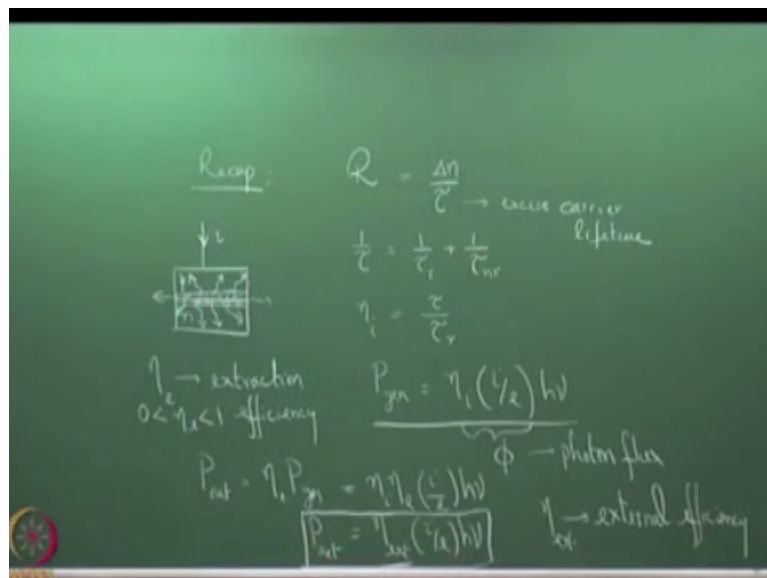 Recap: R = Δn/τ → excess carrier lifetime
i
1/τ = 1/τr + 1/τnr
p
n
ηi = τ/τr
ηe → extraction efficiency
0 < ηe < 1
Pgen = ηi (i/e) hν
Φ → photon flux
Pout = ηe Pgen = ηi ηe (i/e) hν
Pout = ηext (i/e) hν
ηext → external efficiency